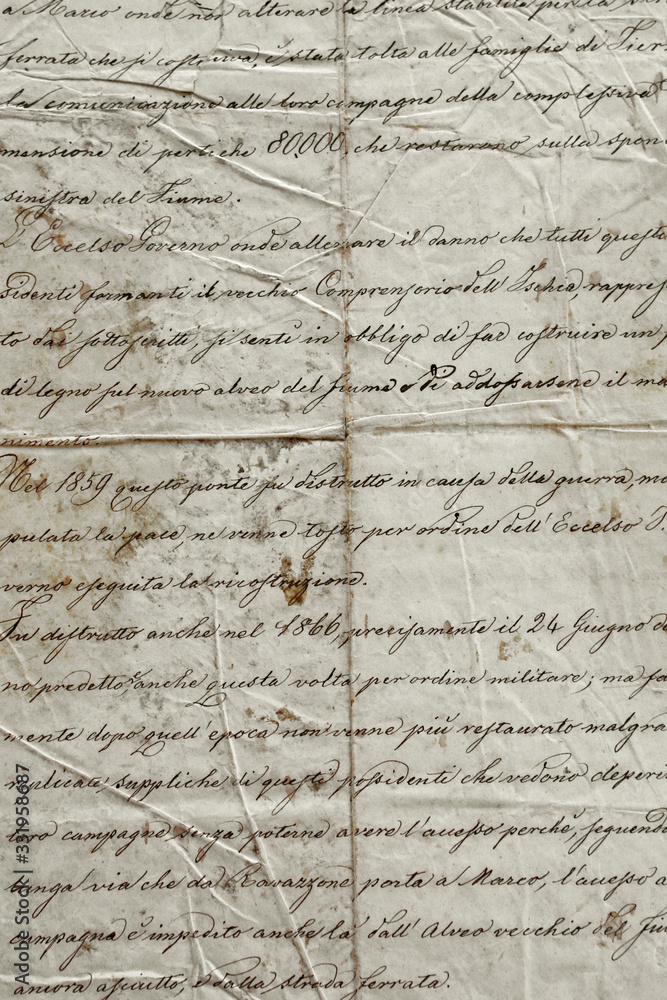 a Marco onde non alterare la linea stabilita per la
ferrata che si costruiva, è stata tolta alle famiglie di Tier
la comunicazione alle loro campagne della complessiva
mensione di pertiche 80,000, che restarono sulla spon
sinistra del Fiume.
L'Eccelso Governo onde allevare il danno che tutti questi
sidenti formanti il vecchio Comprensorio dell'Ischia, rappres
to dai sottoscritti, si sentì in obbligo di far costruire un
di legno sul nuovo alveo del fiume e di addossarsene il ma
nimento.
Nel 1859 questo ponte fu distrutto in causa della guerra, ma
pulata la pace, ne venne tosto per ordine dell'Eccelso
verno eseguita la ricostruzione.
Fu distrutto anche nel 1866, precisamente il 24 Giugno de
no predetto anche questa volta per ordine militare; ma fa
mente dopo quell'epoca non venne più restaurato malgra
replicate suppliche di questi possidenti che vedono deperi
loro campagne, senza poterne avere l'accesso perchè, seguendo
lunga via che da Ravazzone porta a Marco, l'accesso a
campagna è impedito anche là dall'Alveo vecchio del Fiu
ancora asciutto, e dalla strada ferrata.
Adobe Stock | #331958687